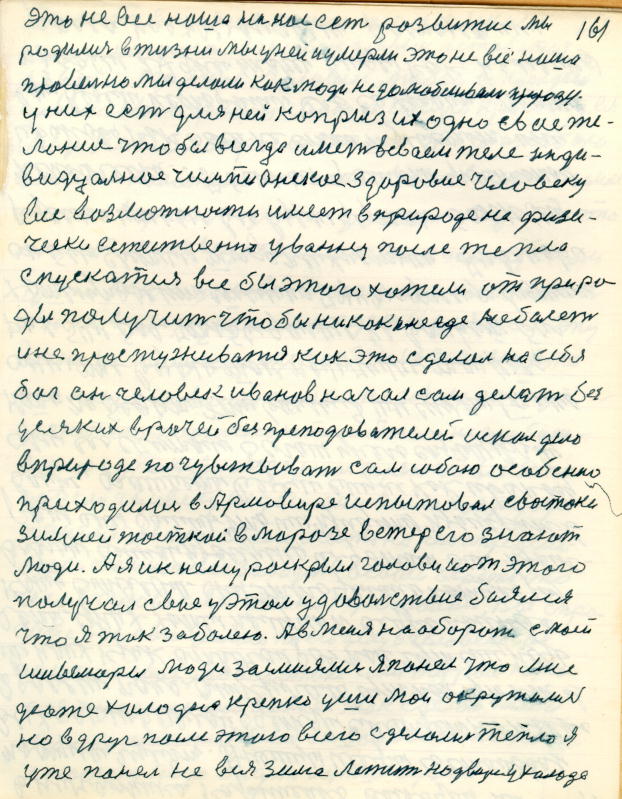 161
Это не все наша на нас ест развитие мы
родилися в жизни мы у ней и умерли это не всё наша
правелно мы делали как люди не
у них ест для ней каприз их одно свае же-
лание чтобы всегда имет в сваем теле инди-
видуалное здоровие человеку
все возможности имеет в природе на физи-
чески естественно у ванну после тепла
спускатия все бы этого хотели от приро-
ды получит чтобы никак и негде неболет
и не простуживатя как это сделал на себя
бог он человек иванов начал сам делат без
усяких врачей без преподователей искал дело
в природе почуствоват сам собою особенно
приходилися в Армовире испытовал с востока
зимней жосткой в морозе ветер его знают
люди. А я и к нему роскрыл голову и от этого
получал свое у этом удоволствие боялся
что я так заболею. А в меня наоборот с моей
люди засмиялися я понел что мне
даже холодна крепко уши мои окружали
но вдруг после этого всего сделалися тепло я
уже понел не вся зима летит на двори у холода